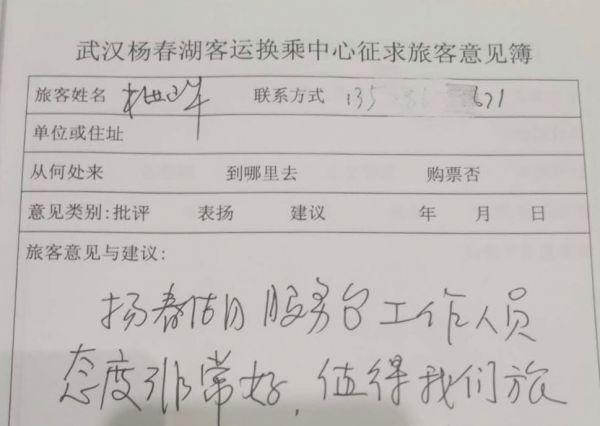 武汉杨春湖客运换乘中心征求旅客意见簿
旅客姓名 联系方式 135 86 671
单位或住址
从何处来 到哪里去 购票否
意见类别:批评 表扬 建议 年 月 日
旅客意见与建议:
扬春湖服务台工作人员
态度非常好,值得我们旅